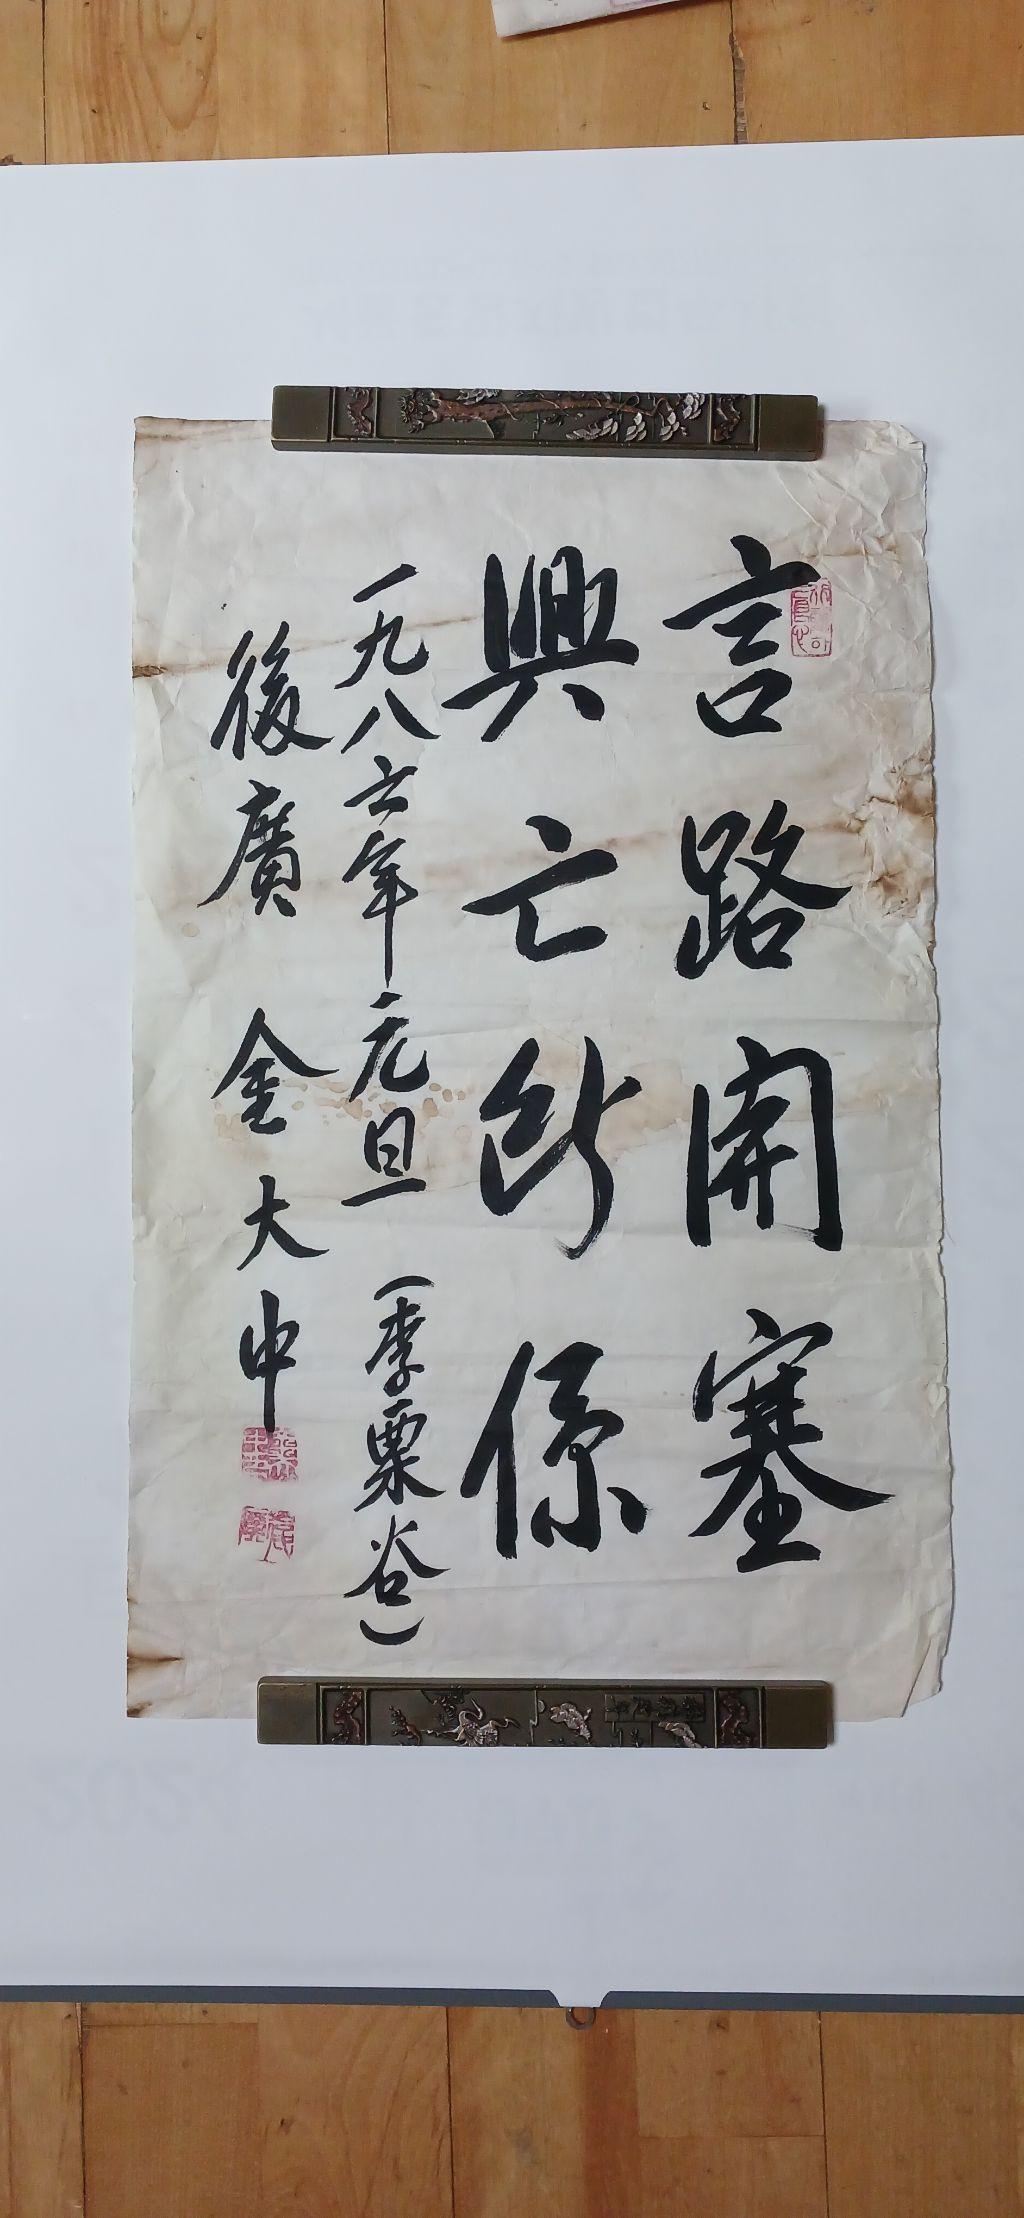 言路開塞
興亡所係
一九八六年元旦 (李栗谷)
後廣 金大中